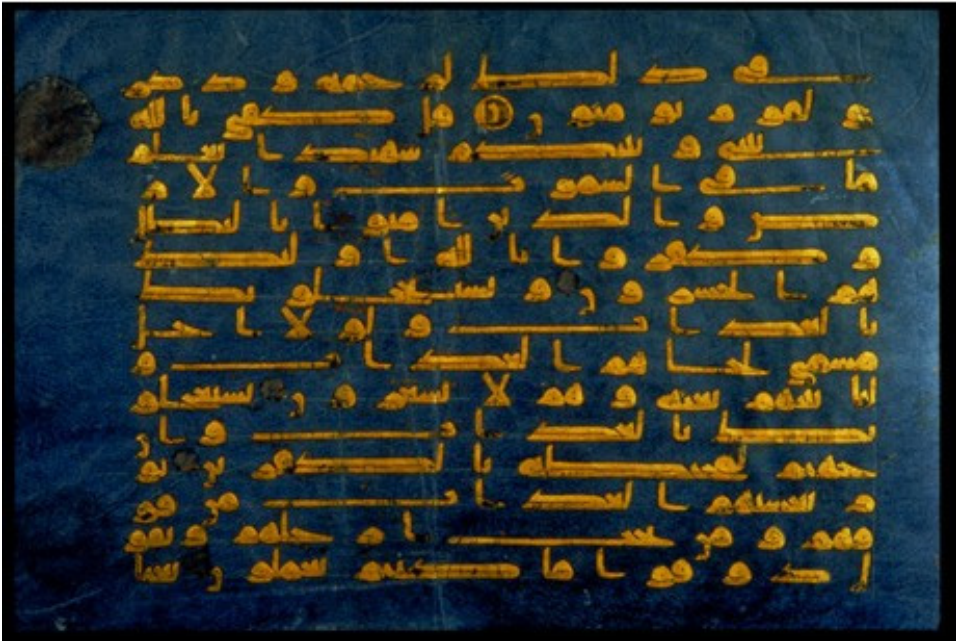 في ذلك لرحمة وذكر
ى لقوم يومنون قل كفى بالله
بيني وبينكم شهيدا يعلم
ما في السموت والار
ض والذين امنوا بالبطل
وكفروا بالله اولئك
هم الخسرون ويستعجلونك
بالعذاب ولولا اجل
مسمى لجاهم العذاب و
لياتينهم بغتة وهم لا يشعرون يستعجلو
نك بالعذاب وان
جهنم لمحيطة بالكفرين يو
م يغشيهم العذاب من فو
قهم ومن تحت ارجلهم ويقو
ل ذوقوا ما كنتم تعملون يعبا